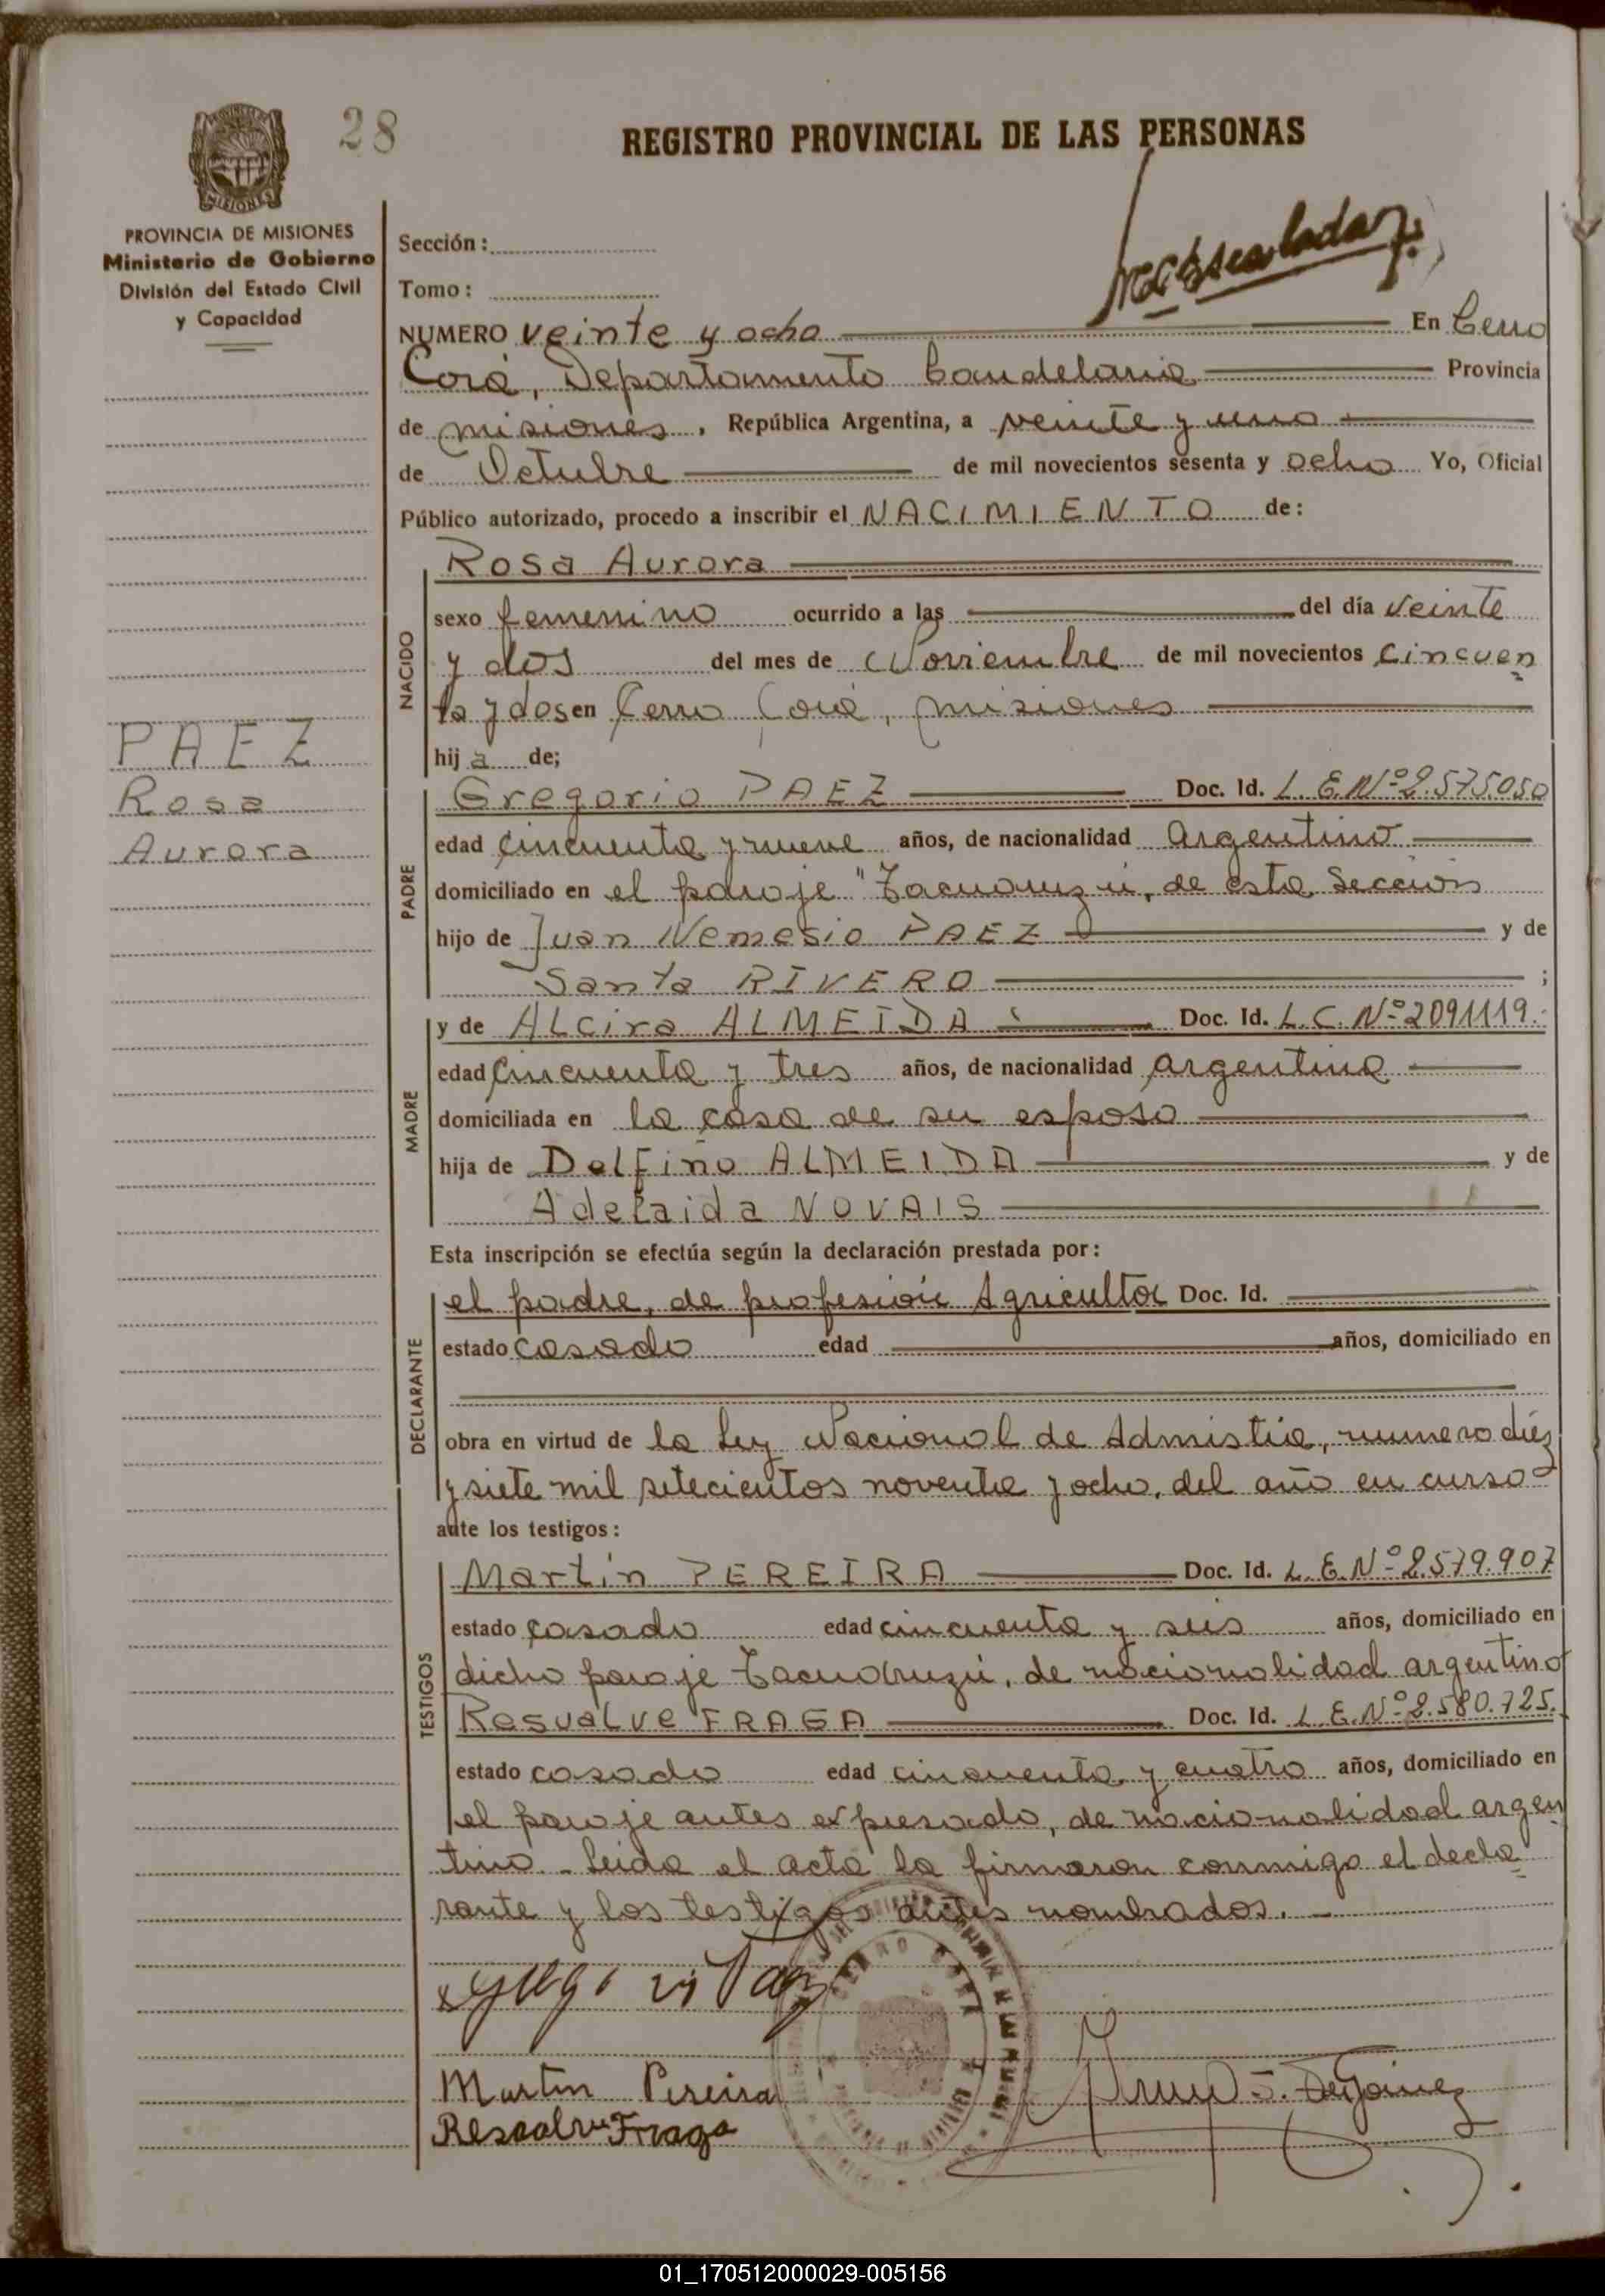 28
REGISTRO PROVINCIAL DE LAS PERSONAS
MISIONES
PROVINCIA DE MISIONES
Ministerio de Gobierno
División del Estado Civil
y Capacidad
Sección:
Tomo:
NUMERO veinte y ocho En Cerro
Corá, Departamento Candelaria Provincia
de misiones, República Argentina, a veinte y uno
de Octubre de mil novecientos sesenta y ocho Yo, Oficial
Público autorizado, procedo a inscribir el NACIMIENTO de:
NACIDO
Rosa Aurora
sexo femenino ocurrido a las del día veinte
y dos del mes de Noviembre de mil novecientos cincuen
ta y dos en Cerro Corá, misiones
hija de;
PAEZ
Rosa
Aurora
PADRE
Gregorio PAEZ Doc. Id. L.E.Nº 2.575.050
edad cincuenta y nueve años, de nacionalidad argentino
domiciliado en el paraje "Tacuaruzú, de esta Sección
hijo de Juan Nemesio PAEZ y de
Santa RIVERO ;
MADRE
y de ALcira ALMEIDA Doc. Id. L.C. Nº 2091119.
edad cincuenta y tres años, de nacionalidad argentina
domiciliada en la casa de su esposo
hija de Delfino ALMEIDA y de
Adelaida NOVAIS
Esta inscripción se efectúa según la declaración prestada por:
DECLARANTE
el padre, de profesión Agricultor Doc. Id.
estado casado edad años, domiciliado en
obra en virtud de la Ley Nacional de Admistia, numero diez
y siete mil setecientos noventa y ocho, del año en curso
ante los testigos:
TESTIGOS
Martin PEREIRA Doc. Id. L.E.Nº 2.579.907
estado casado edad cincuenta y seis años, domiciliado en
dicho paraje Tacuaruzú, de nacionalidad argentino
ResuaLve FRAGA Doc. Id. L.E.Nº 2.580.725.
estado casado edad cincuenta y cuatro años, domiciliado en
el paraje antes expresado, de nacionalidad argen
tino - Leida el acta la firmaron conmigo el decla
rante y los testigos antes nombrados. -
CERRO CORA
Martin Pereira
Resoalve Fraga
01_170512000029-005156